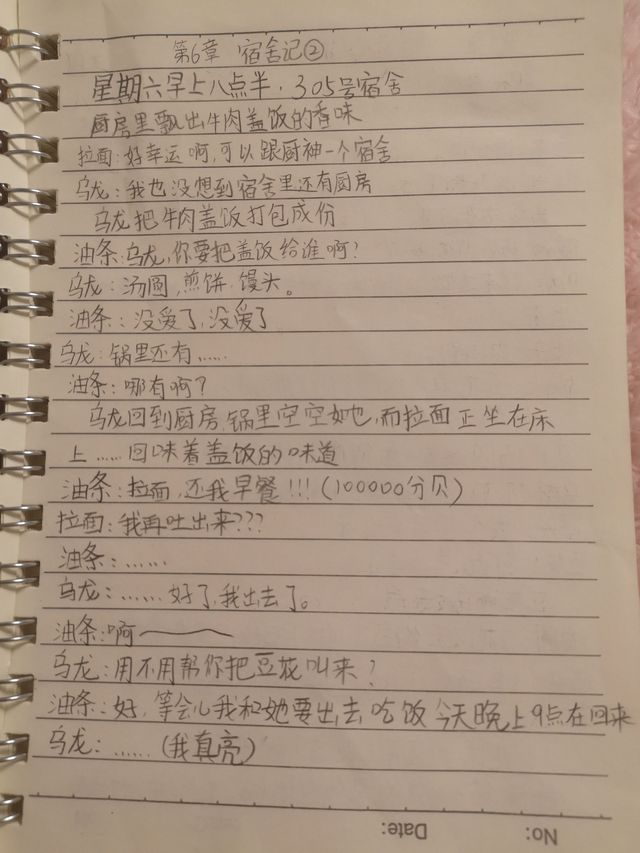 第6章 宿舍记②
星期六早上八点半，305号宿舍
厨房里飘出牛肉盖饭的香味
拉面：好幸运啊，可以跟厨神一个宿舍
乌龙：我也没想到宿舍里还有厨房
乌龙把牛肉盖饭打包成份
油条：乌龙，你要把盖饭给谁啊？
乌龙：汤圆，煎饼，馒头。
油条：没爱了，没爱了
乌龙：锅里还有……
油条：哪有啊？
乌龙回到厨房，锅里空空如也，而拉面正坐在床
上……回味着盖饭的味道
油条：拉面，还我早餐!!!（100000分贝）
拉面：我再吐出来???
油条：……
乌龙：……好了，我出去了。
油条：啊——
乌龙：用不用帮你把豆花叫来？
油条：好，等会儿我和她要出去吃饭 今天晚上9点在回来
乌龙：……（我真亮）
No:
Date: